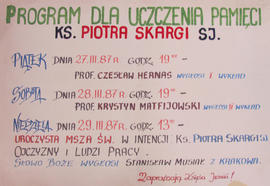 PROGRAM DLA UCZCZENIA PAMIĘCI
KS. PIOTRA SKARGI SJ.
PIĄTEK DNIA 27.III.87r. GODZ. 19⁰⁰ –
PROF. CZESŁAW HERNAS WYGŁOSI I WYKŁAD
SOBOTA DNIA 28.III.87r. GODZ. 19⁰⁰ –
PROF. KRYSTYN MATFIJOWSKI WYGŁOSI II WYKŁAD
NIEDZIELA DNIA 29.III.87r. GODZ. 13⁰⁰ –
UROCZYSTA MSZA ŚW. W INTENCJI KS. PIOTRA SKARGI
OJCZYZNY I LUDZI PRACY.
SŁOWO BOŻE WYGŁOSI STANISŁAW MUSIAŁ Z KRAKOWA.
Zapraszają Księża Jezuici!